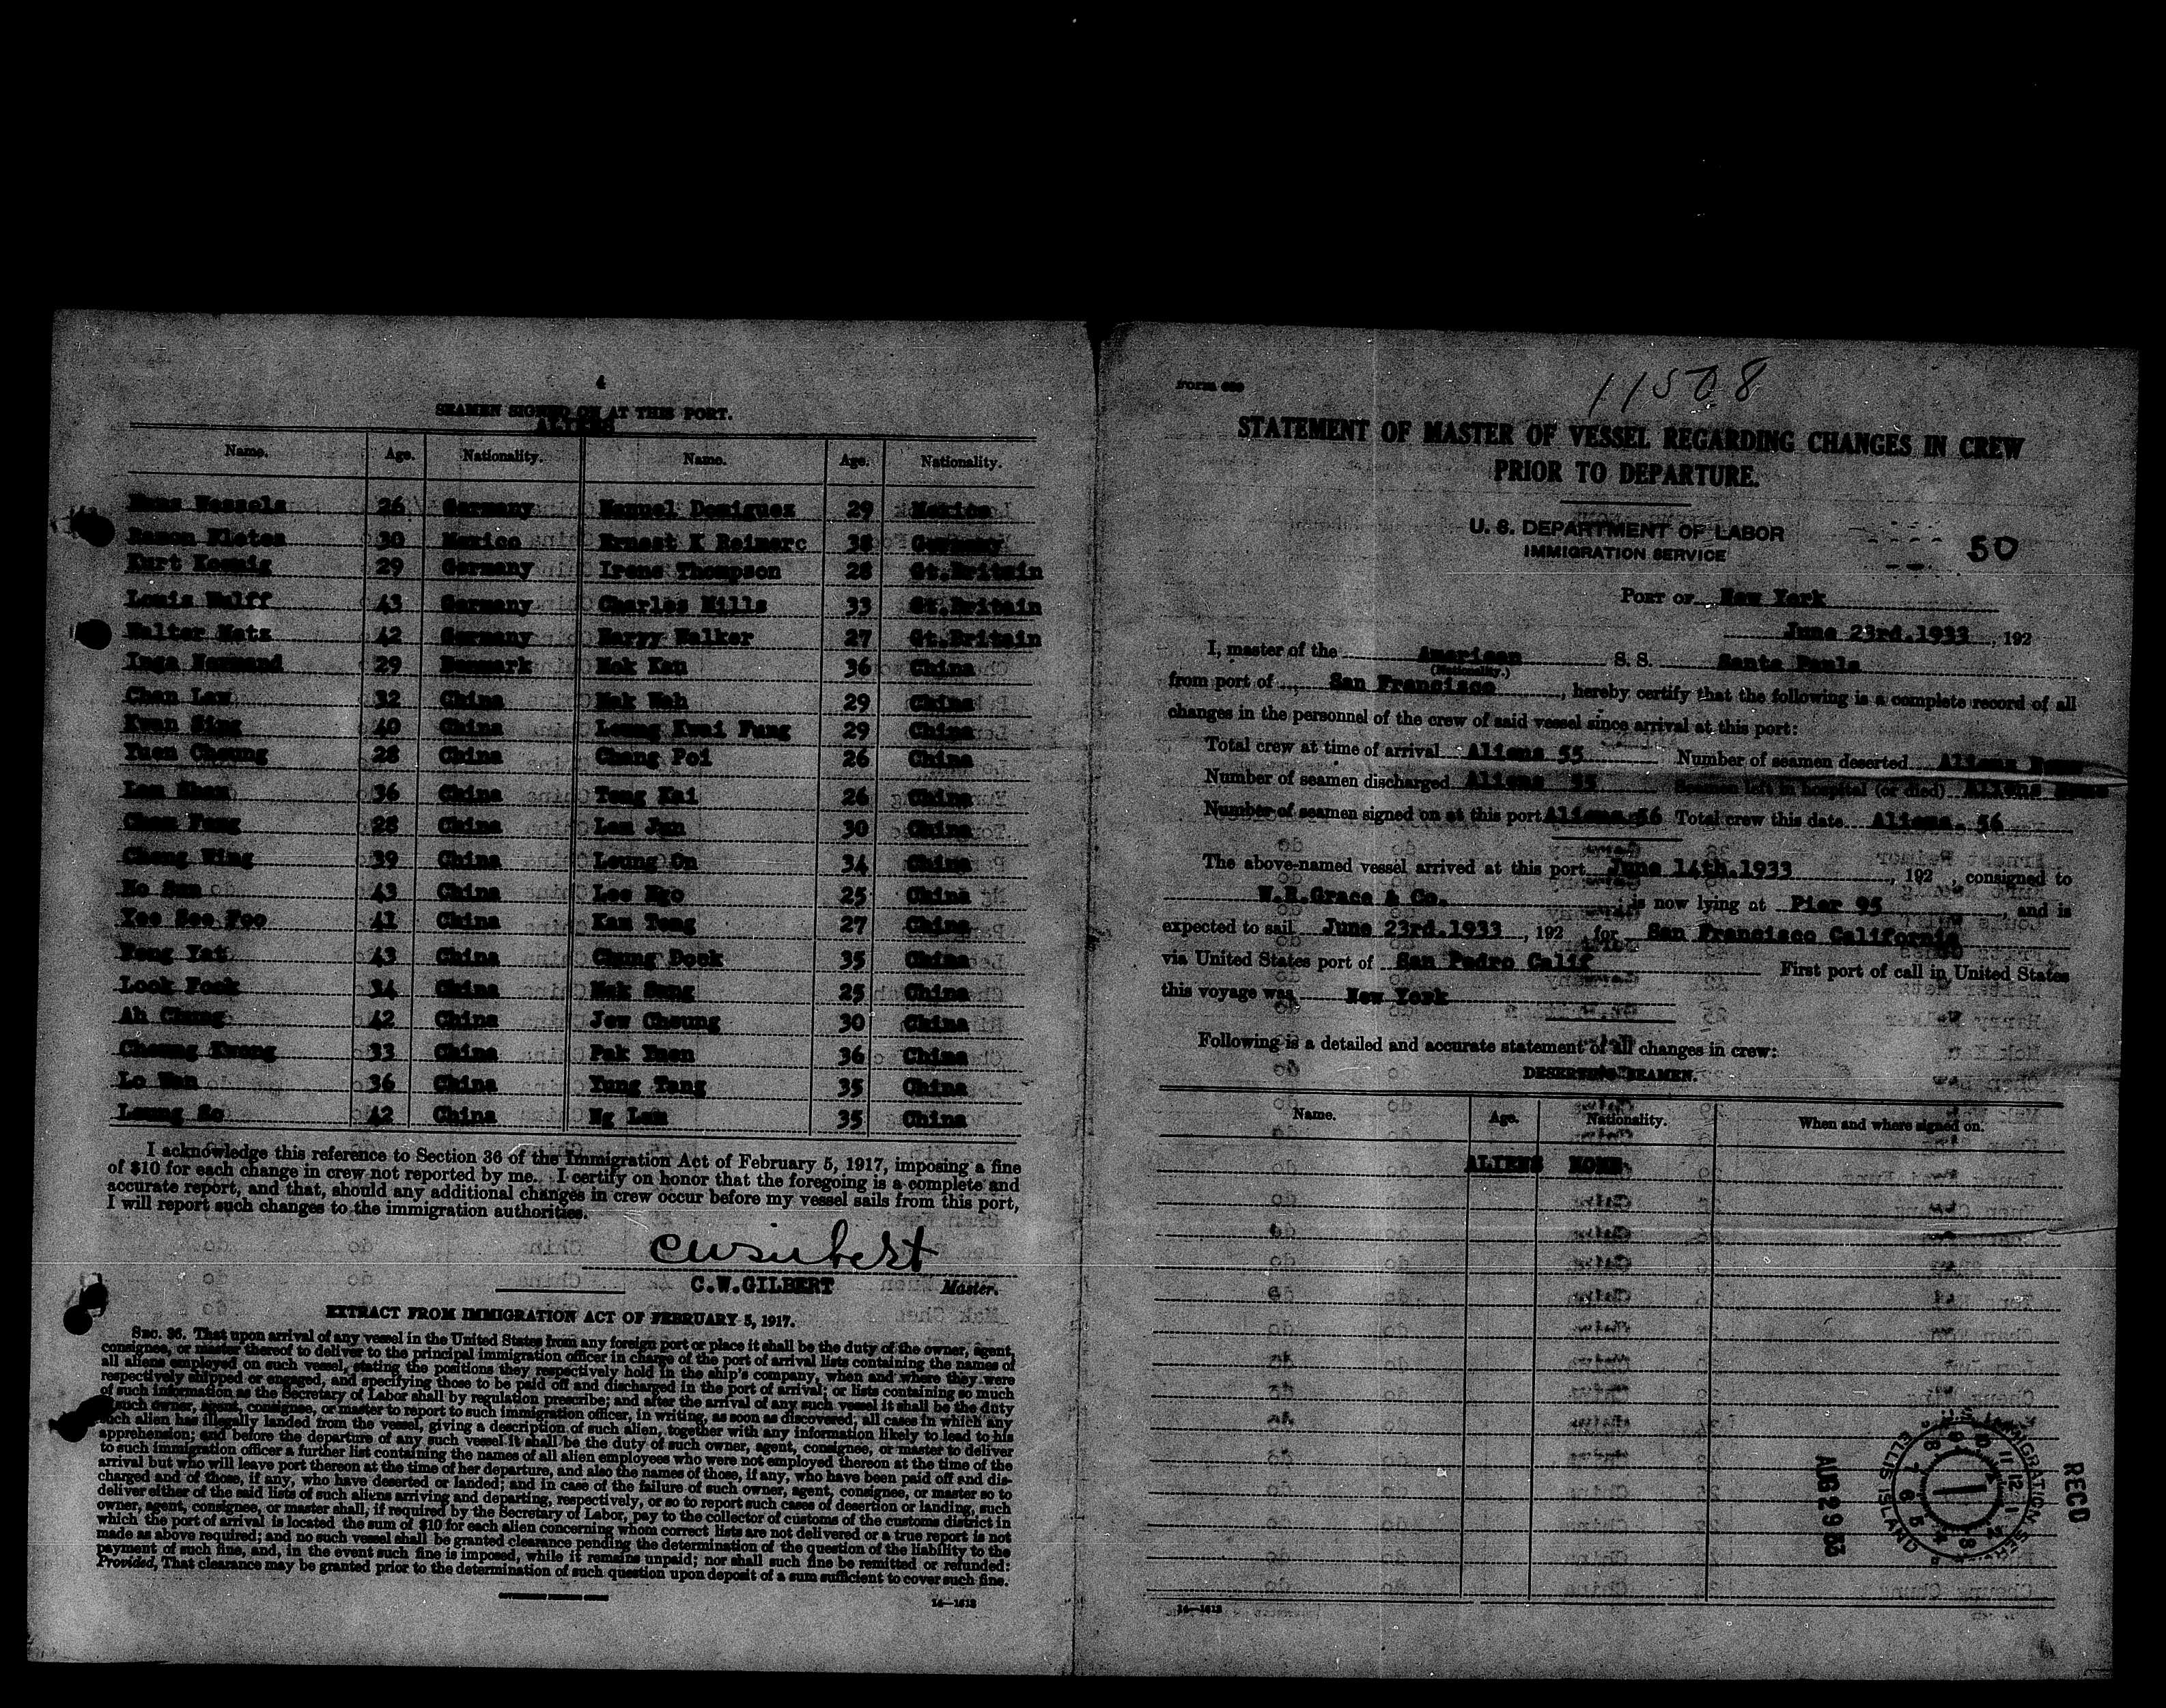 4
SEAMEN SIGNED ON AT THIS PORT.
ALIENS
Name. Age. Nationality. Name. Age. Nationality.
Hans Wessels 26 Germany Manuel Domiguez 29 Mexico
Ramon 30 Mexico Ernest K Reimerc 38 Germany
Kurt Koenig 29 Germany Irene Thompson 28 Gt.Britain
Louis Wulff 43 Germany Charles Mills 33 Gt.Britain
Walter Metz 42 Germany Haryy Walker 27 Gt.Britain
Inga Normand 29 Denmark Mok Kan 36 China
Chan Law 32 China Mak Wah 29 China
Kwan Sing 40 China Leung Kwai Fung 29 China
Yuen Cheung 28 China Chang Poi 26 China
Lam Sham 36 China Tong Kai 26 China
Chan Fong 28 China Lam Jun 30 China
Chong Wing 39 China Leung On 34 China
Ho Sun 43 China Lee Ngo 25 China
Yee See Foo 41 China Kam Tong 27 China
Fong Yat 43 China Chung Dock 35 China
Look Fook 34 China Mak Sung 25 China
Ah Chung 42 China Jew Cheung 30 China
Cheung Kwong 33 China Pak Yuen 36 China
Lo Wan 36 China Yung Tang 35 China
Leung So 42 China Ng Lam 35 China
I acknowledge this reference to Section 36 of the Immigration Act of February 5, 1917, imposing a fine
of $10 for each change in crew not reported by me. I certify on honor that the foregoing is a complete and
accurate report, and that, should any additional changes in crew occur before my vessel sails from this port,
I will report such changes to the immigration authorities.
C.W.GILBERT Master.
EXTRACT FROM IMMIGRATION ACT OF FEBRUARY 5, 1917.
SEC. 36. That upon arrival of any vessel in the United States from any foreign port or place it shall be the duty of the owner, agent,
consignee, or master thereof to deliver to the principal immigration officer in charge of the port of arrival lists containing the names of
all aliens employed on such vessel, stating the positions they respectively hold in the ship's company, when and where they were
respectively shipped or engaged, and specifying those to be paid off and discharged in the port of arrival; or lists containing so much
of such information as the Secretary of Labor shall by regulation prescribe; and after the arrival of any such vessel it shall be the duty
of such owner, agent, consignee, or master to report to such immigration officer, in writing, as soon as discovered, all cases in which any
such alien has illegally landed from the vessel, giving a description of such alien, together with any information likely to lead to his
apprehension; and before the departure of any such vessel it shall be the duty of such owner, agent, consignee, or master to deliver
to such immigration officer a further list containing the names of all alien employees who were not employed thereon at the time of the
arrival but who will leave port thereon at the time of her departure, and also the names of those, if any, who have been paid off and dis-
charged and of those, if any, who have deserted or landed; and in case of the failure of such owner, agent, consignee, or master so to
deliver either of the said lists of such aliens arriving and departing, respectively, or so to report such cases of desertion or landing, such
owner, agent, consignee, or master shall, if required by the Secretary of Labor, pay to the collector of customs of the customs district in
which the port of arrival is located the sum of $10 for each alien concerning whom correct lists are not delivered or a true report is not
made as above required; and no such vessel shall be granted clearance pending the determination of the question of the liability to the
payment of such fine, and, in the event such fine is imposed, while it remains unpaid; nor shall such fine be remitted or refunded:
Provided, That clearance may be granted prior to the determination of such question upon deposit of a sum sufficient to cover such fine.
GOVERNMENT PRINTING OFFICE
14—1613
Form 689
11508
STATEMENT OF MASTER OF VESSEL REGARDING CHANGES IN CREW
PRIOR TO DEPARTURE.
U. S. DEPARTMENT OF LABOR
IMMIGRATION SERVICE
50
PORT OF New York
June 23rd.1933, 192
I, master of the American S. S. Santa Paula
(Nationality.)
from port of San Francisco, hereby certify that the following is a complete record of all
changes in the personnel of the crew of said vessel since arrival at this port:
Total crew at time of arrival Aliens 55 Number of seamen deserted Aliens None
Number of seamen discharged Aliens 55 Seamen left in hospital (or died) Aliens None
Number of seamen signed on at this port Aliens 56 Total crew this date Aliens. 56
The above-named vessel arrived at this port June 14th.1933, 192 , consigned to
W.R.Grace & Co. ; is now lying at Pier 95, and is
expected to sail June 23rd.1933, 192 for San Francisco California
via United States port of San Pedro Calif First port of call in United States
this voyage was New York
Following is a detailed and accurate statement of all changes in crew:
DESERTING SEAMEN.
Name. Age. Nationality. When and where signed on.
ALIENS NONE
RECD
AUG 29 33
IMMIGRATION SER
ELLIS ISLAND
14—1613